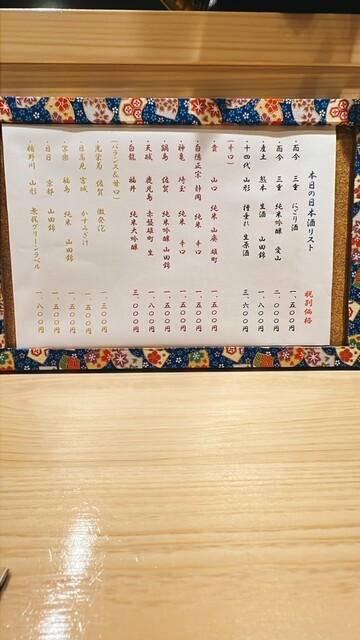 本日の日本酒リスト
税別価格
・而今 三重 にごり酒 一、五〇〇円
・而今 三重 純米吟醸 愛山 二、〇〇〇円
・産土 熊本 生酒 山田錦 一、八〇〇円
・十四代 山形 槽垂れ 生原酒 三、六〇〇円
(辛口)
・貴 山口 純米 山廃 雄町 一、五〇〇円
・白隠正宗 静岡 純米 辛口 一、五〇〇円
・神亀 埼玉 純米 辛口 一、五〇〇円
・鍋島 佐賀 純米吟醸 山田錦 一、五〇〇円
・天城 鹿児島 赤磐雄町 生 一、八〇〇円
・白龍 福井 純米大吟醸 三、〇〇〇円
(バランス&甘口)
・光栄菊 佐賀 微発泡 一、三〇〇円
・日高見 宮城 かすみざけ 一、五〇〇円
・写楽 福島 純米 山田錦 一、五〇〇円
・日日 京都 山田錦 一、五〇〇円
・楯野川 山形 無我グリーンラベル 一、八〇〇円